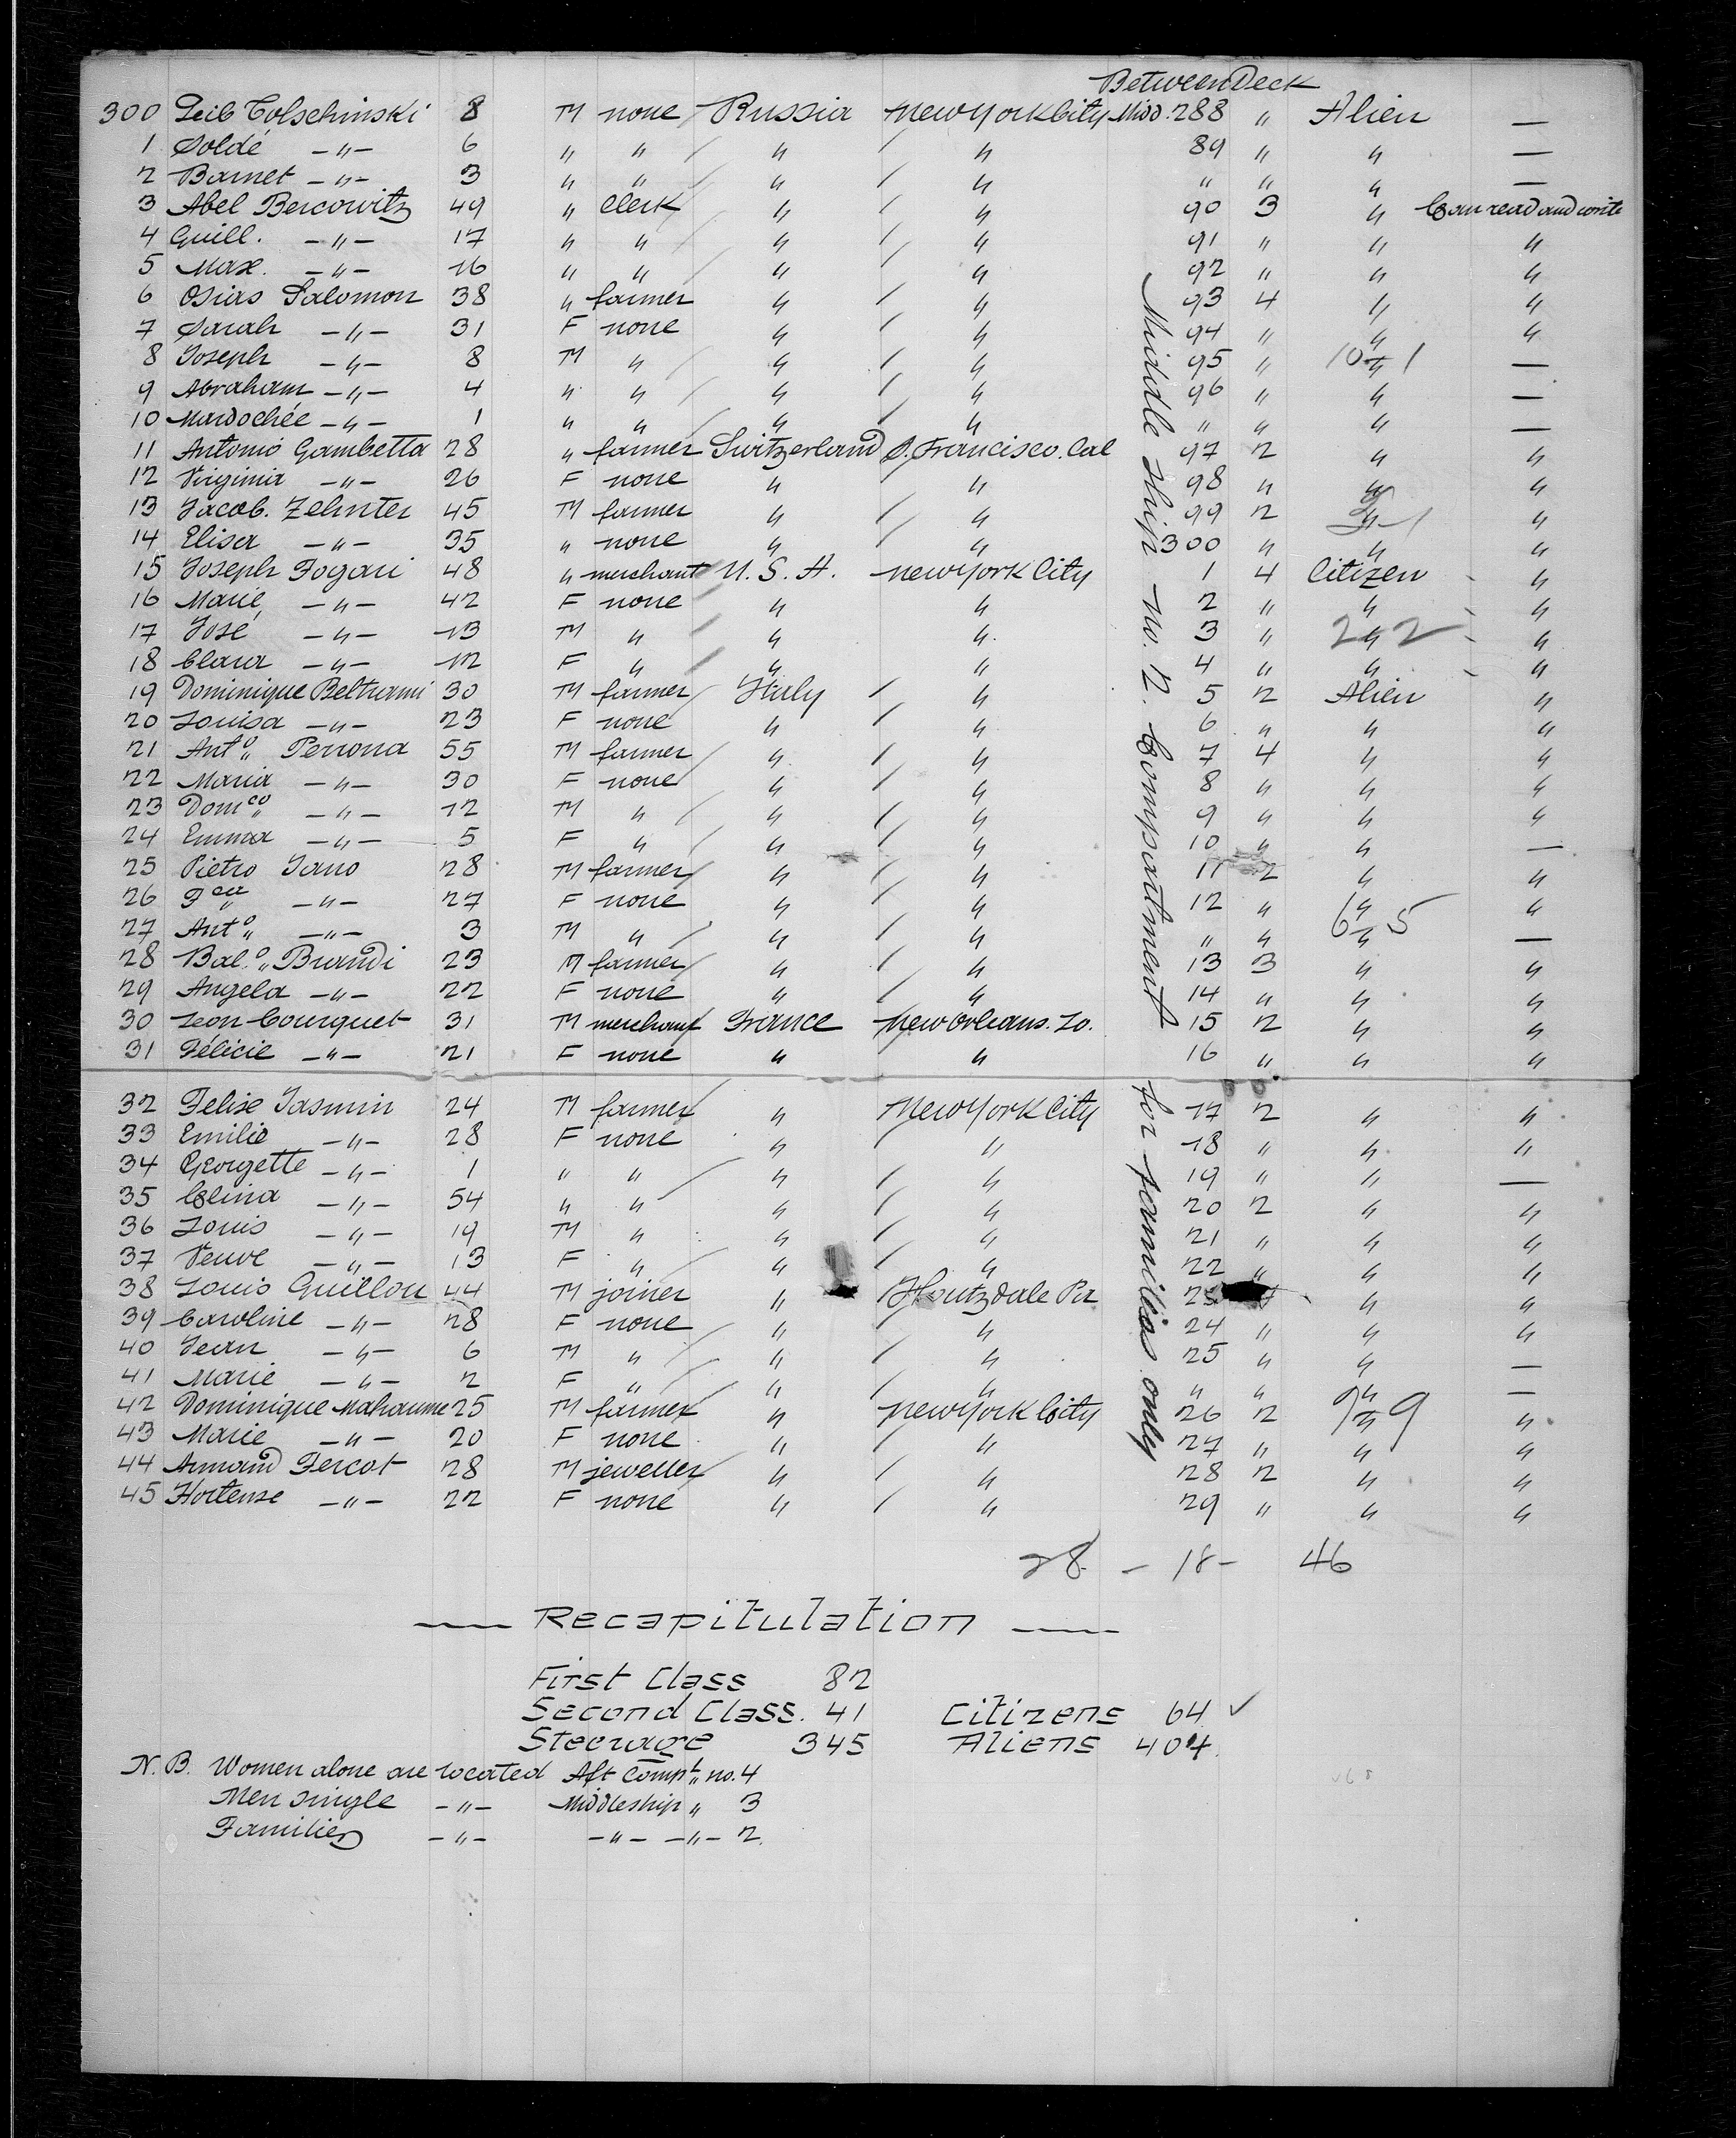 Between Deck
300 Leib Tolschinski 8 M none Russia New York City Midd. 288 " Alien —
1 Soldé —"— 6 " " " " 89 " " —
2 Barnet —"— 3 " " " " " " " —
3 Abel Bercowitz 49 " Clerk " " 90 3 " Can read and write
4 Guill. —"— 17 " " " " 91 " " "
5 Max. —"— 16 " " " " 92 " " "
6 Osias Salomon 38 " farmer " " 93 4 " "
7 Sarah —"— 31 F none " " 94 " " "
8 Joseph —"— 8 M " " " 95 " " —
10 - 1
9 Abraham —"— 4 " " " " 96 " " —
10 Mardochée —"— 1 " " " " " " " —
11 Antonio Gambetta 28 " farmer Switzerland S. Francisco. Cal 97 2 " "
12 Virginia —"— 26 F none " " 98 " " "
13 Jacob. Zehnter 45 M farmer " " 99 2 " "
14 Elisa —"— 35 " none " " 300 " " "
15 Joseph Fogari 48 " merchant U. S. A. New York City 1 4 Citizen "
16 Marie —"— 42 F none " " 2 " " "
17 José —"— 13 M " " " 3 " " "
2 - 2
18 Clara —"— 12 F " " " 4 " " "
19 Dominique Beltrami 30 M farmer Italy " 5 2 Alien "
20 Louisa —"— 23 F none " " 6 " " "
21 Ant° Perrona 55 M farmer " " 7 4 " "
22 Maria —"— 30 F none " " 8 " " "
23 Dom.co —"— 12 M " " " 9 " " "
24 Emma —"— 5 F " " " 10 " " —
25 Pietro Jano 28 M farmer " " 11 2 " "
26 —"— 27 F none " " 12 " " "
6 - 5
27 Ant° —"— 3 M " " " " " " —
28 Bal.° Brandi 23 M farmer " " 13 3 " "
29 Angela —"— 22 F none " " 14 " " "
30 Leon Courquet 31 M merchant France New Orleans. Lo. 15 2 " "
31 Félicie —"— 21 F none " " 16 " " "
32 Felix Jasmin 24 M farmer " New York City 17 2 " "
33 Emilie —"— 28 F none " " 18 " " "
34 Georgette —"— 1 " " " " 19 " " —
35 Celina —"— 54 " " " " 20 2 " "
36 Louis —"— 19 M " " " 21 " " "
37 Veuve —"— 13 F " " " 22 " " "
38 Louis Guillou 44 M joiner " Houtzdale Pa 23 " "
39 Caroline —"— 28 F none " " 24 " " "
40 Jean —"— 6 M " " " 25 " " —
41 Marie —"— 2 F " " " " " " —
42 Dominique Mahaume 25 M farmer " New York City 26 2 " "
9 - 9
43 Marie —"— 20 F none " " 27 " " "
44 Armand Fercot 28 M jeweller " " 28 2 " "
45 Hortense —"— 22 F none " " 29 " " "
Middle ship no. 2. Compartment for families only
28 - 18 - 46
— Recapitulation —
First Class 82
Second Class. 41 Citizens 64 ✓
Steerage 345 Aliens 404.
N. B. Women alone are located Aft Compt. no. 4
Men single —"— Middleship " 3
Families —"— —"— —"— 2.